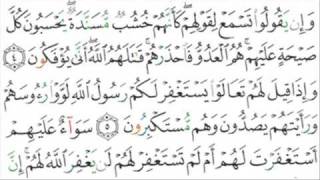 وَإِن يَقُولُوا۟ تَسْمَعْ لِقَوْلِهِمْ كَأَنَّهُمْ خُشُبٌ مُّسَنَّدَةٌ يَحْسَبُونَ كُلَّ
صَيْحَةٍ عَلَيْهِمْ هُمُ ٱلْعَدُوُّ فَٱحْذَرْهُمْ قَٰتَلَهُمُ ٱللَّهُ أَنَّىٰ يُؤْفَكُونَ ٤
وَإِذَا قِيلَ لَهُمْ تَعَالَوْا۟ يَسْتَغْفِرْ لَكُمْ رَسُولُ ٱللَّهِ لَوَّوْا۟ رُءُوسَهُمْ
وَرَأَيْتَهُمْ يَصُدُّونَ وَهُم مُّسْتَكْبِرُونَ ٥ سَوَآءٌ عَلَيْهِمْ
أَسْتَغْفَرْتَ لَهُمْ أَمْ لَمْ تَسْتَغْفِرْ لَهُمْ لَن يَغْفِرَ ٱللَّهُ لَهُمْ إِنَّ